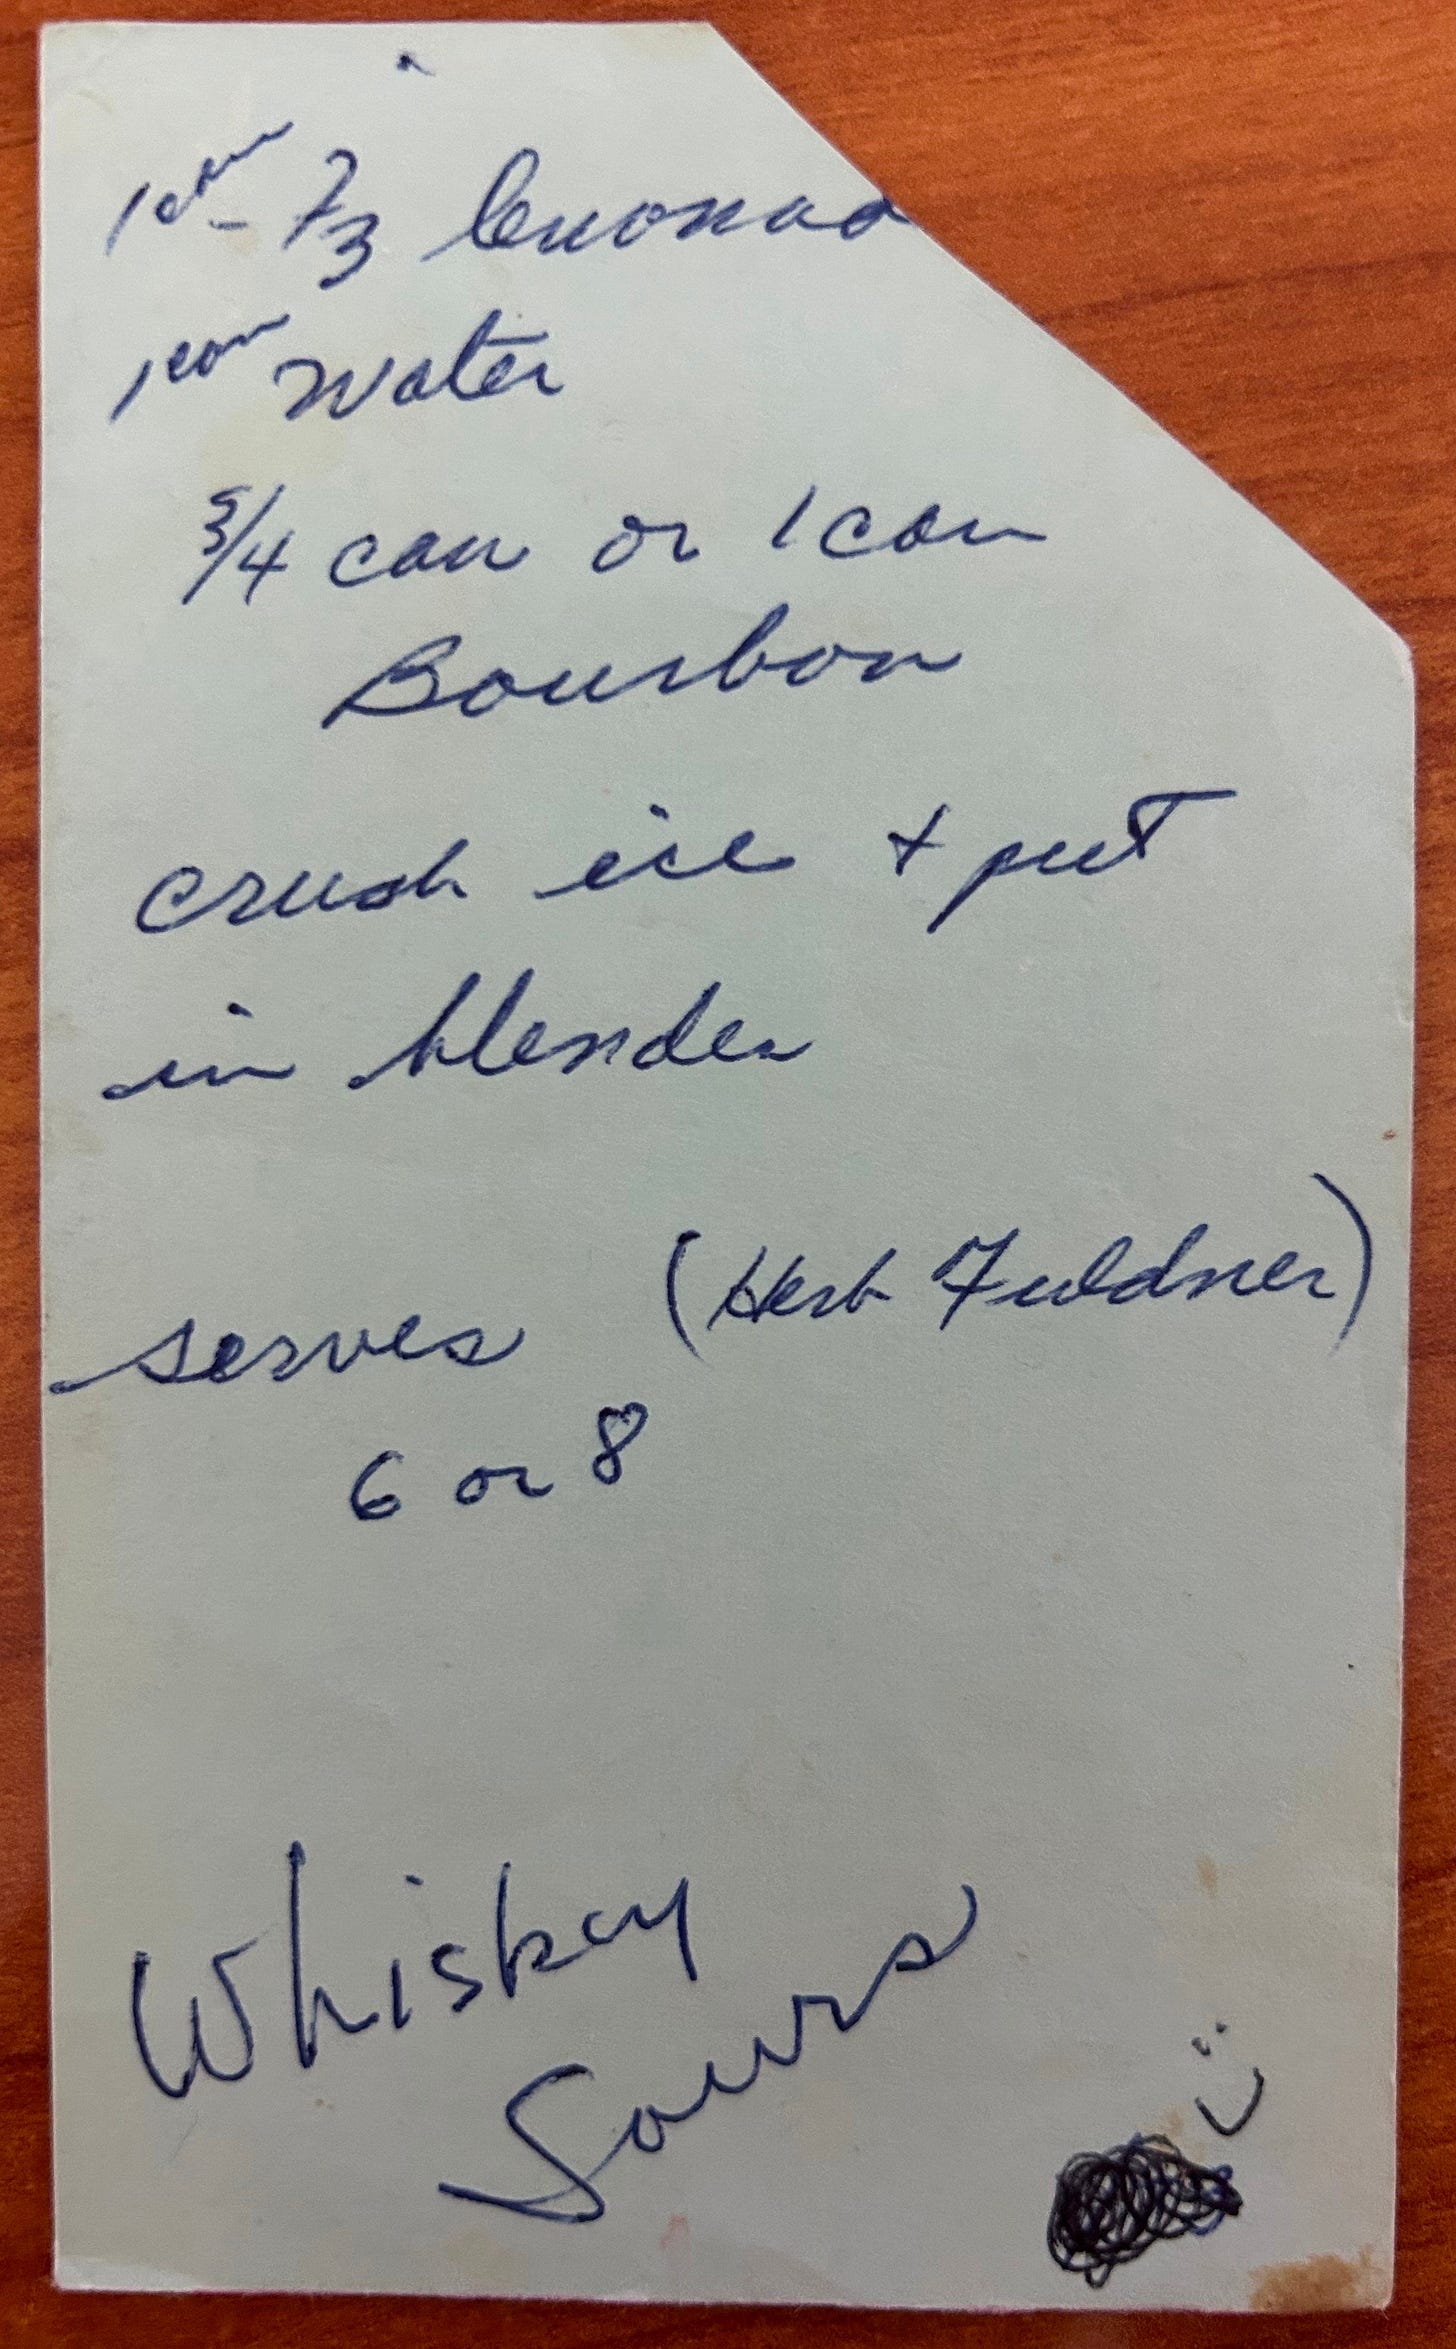 1 can - 2/3 lemonad
1 can water
3/4 can or 1 can
Bourbon
crush ice + put
in blender
serves (Herb Fuldner)
6 or 8
Whiskey
Sours